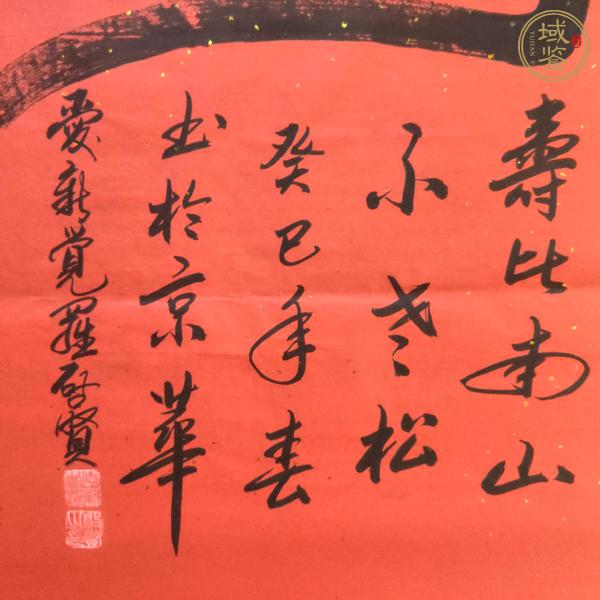 壽比南山
不老松
癸巳年春
书於京華
愛新覺羅啟賢
域鉴
YUJIAN